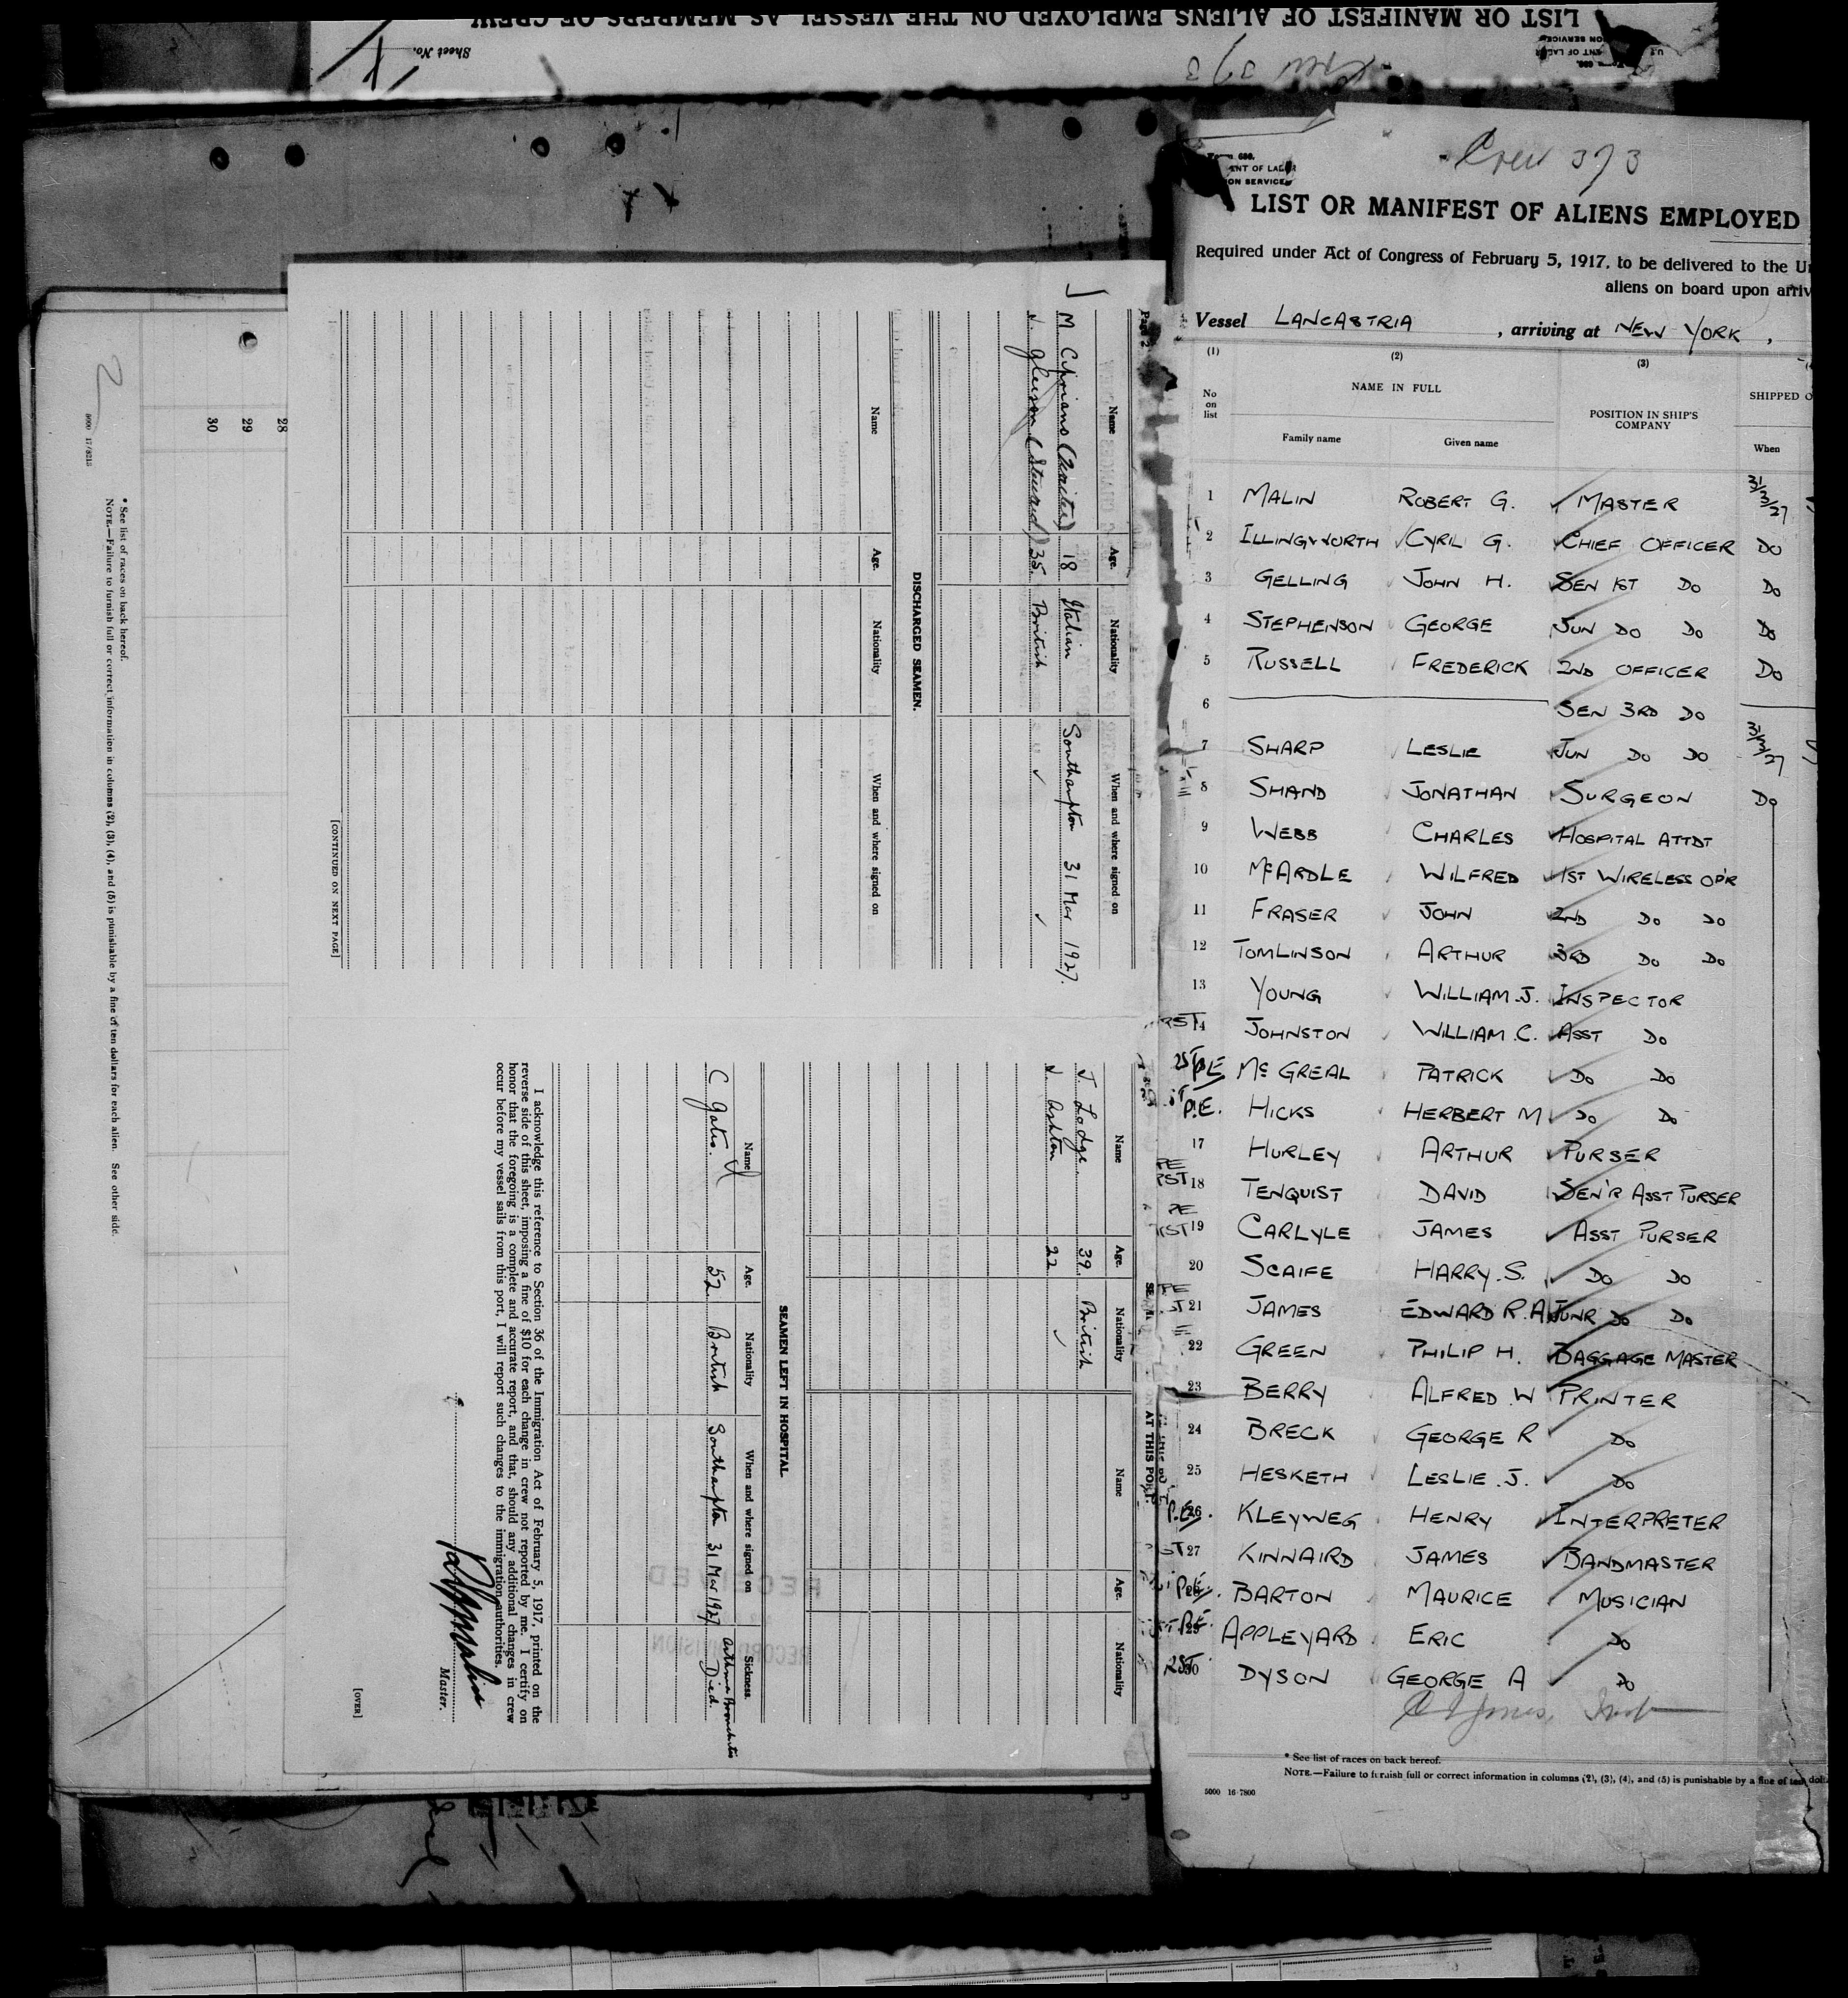 LIST OR MANIFEST OF ALIENS EMPLOYED ON THE VESSEL AS MEMBERS OF CREW
Sheet No.
Crew 373
Crew 373
Form 680.
ENT OF LABOR
ON SERVICE
LIST OR MANIFEST OF ALIENS EMPLOYED
Required under Act of Congress of February 5, 1917, to be delivered to the
aliens on board upon
Vessel LANCASTRIA , arriving at NEW YORK ,
(1) (2) (3)
No on list NAME IN FULL POSITION IN SHIP'S COMPANY SHIPPED
Family name Given name When
1 MALIN ROBERT G. MASTER 31/3/27
2 ILLINGWORTH CYRIL G. CHIEF OFFICER DO
3 GELLING JOHN H. SEN 1ST DO DO
4 STEPHENSON GEORGE JUN DO DO DO
5 RUSSELL FREDERICK 2ND OFFICER DO
6 SEN 3RD DO
7 SHARP LESLIE JUN DO DO 31/3/27
8 SHAND JONATHAN SURGEON DO
9 WEBB CHARLES HOSPITAL ATTDT
10 McARDLE WILFRED 1ST WIRELESS OP'R
11 FRASER JOHN 2ND DO DO
12 TOMLINSON ARTHUR 3RD DO DO
13 YOUNG WILLIAM.J. INSPECTOR
14 JOHNSTON WILLIAM.C. ASST DO
PE Mc GREAL PATRICK DO DO
P.E. HICKS HERBERT M DO DO
17 HURLEY ARTHUR PURSER
18 TENQUIST DAVID SEN'R ASST PURSER
19 CARLYLE JAMES ASST PURSER
20 SCAIFE HARRY.S. DO DO
21 JAMES EDWARD R.A JUNR DO DO
22 GREEN PHILIP H. BAGGAGE MASTER
23 BERRY ALFRED.W PRINTER
24 BRECK GEORGE R DO
25 HESKETH LESLIE.J. DO
P.E. 26 KLEYWEG HENRY INTERPRETER
27 KINNAIRD JAMES BANDMASTER
P.E. BARTON MAURICE MUSICIAN
P.E. APPLEYARD ERIC DO
30 DYSON GEORGE A DO
* See list of races on back hereof.
NOTE.—Failure to furnish full or correct information in columns (2), (3), (4), and (5) is punishable by a fine of ten
5000 16-7800
Page 2
Name Age. Nationality When and where signed on
M Cipriano (Waiter) 18 Italian Southampton 31 Mar 1927.
J. Gleeson (Steward) 35 British
DISCHARGED SEAMEN.
Name Age. Nationality When and where signed on
[CONTINUED ON NEXT PAGE]
AT THIS PORT.
Name Age. Nationality Name Age. Nationality
J. Lodge. 39 British
J. Ashton 22
SEAMEN LEFT IN HOSPITAL.
Name Age. Nationality When and where signed on Sickness.
C Gates. 52 British Southampton 31 Mar 1927 Died.
RECEIVED
RECORD DIVISION
I acknowledge this reference to Section 36 of the Immigration Act of February 5, 1917, printed on the
reverse side of this sheet, imposing a fine of $10 for each change in crew not reported by me. I certify on
honor that the foregoing is a complete and accurate report, and that, should any additional changes in crew
occur before my vessel sails from this port, I will report such changes to the immigration authorities.
Master.
[OVER]
28
29
30
* See list of races on back hereof.
NOTE.—Failure to furnish full or correct information in columns (2), (3), (4), and (5) is punishable by a fine of ten dollars for each alien. See other side.
2